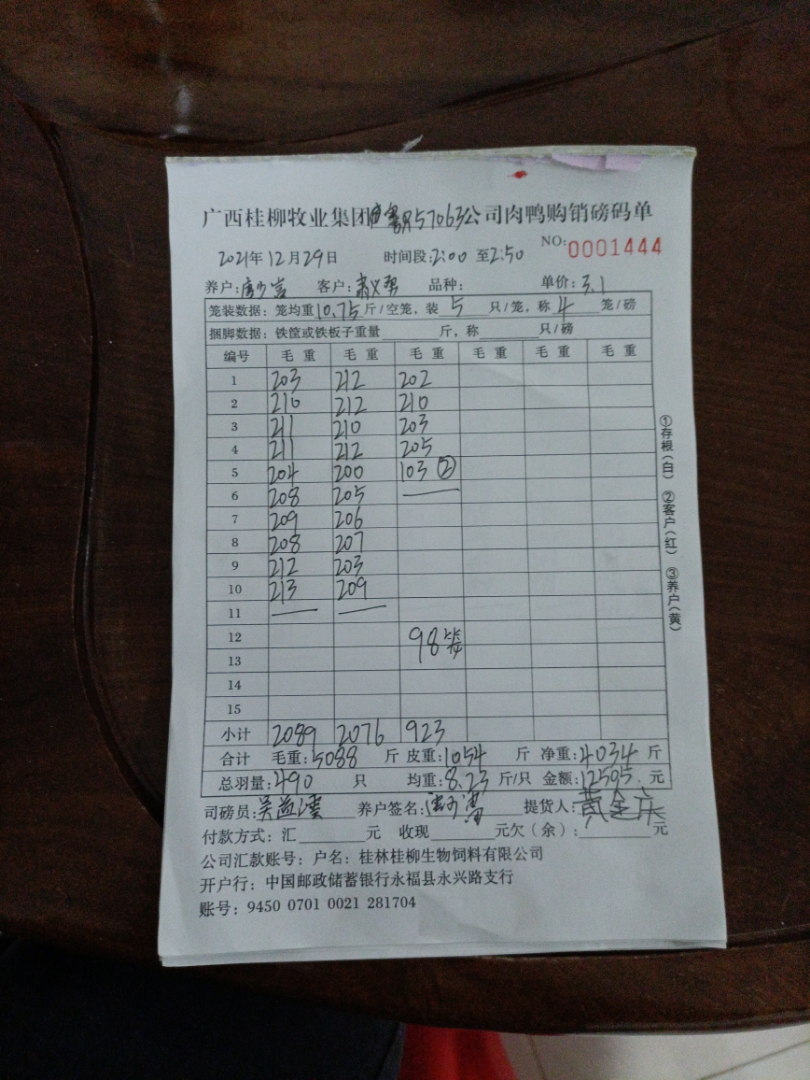 广西桂柳牧业集团R57063公司肉鸭购销磅码单
2021年12月29日 时间段:2:00 至2:50 NO:0001444
养户: 客户: 品种: 单价:3.1
笼装数据:笼均重10.75斤/空笼,装5只/笼,称4笼/磅
捆脚数据:铁筐或铁板子重量 斤,称 只/磅
编号 毛重 毛重 毛重 毛重 毛重 毛重
1 203 212 202
2 210 212 210
3 211 210 203
4 211 212 205
5 204 200 103②
6 208 205
7 209 206
8 208 207
9 212 203
10 213 209
11
12 98
13
14
15
小计 2089 2076 923
合计 毛重:5088 斤 皮重:1054 斤 净重:4034 斤
总羽量:490 只 均重:8.23斤/只 金额:12505.元
司磅员: 养户签名: 提货人:黄金
付款方式:汇 元 收现 元欠(余): 元
公司汇款账号:户名:桂林桂柳生物饲料有限公司
开户行:中国邮政储蓄银行永福县永兴路支行
账号:9450 0701 0021 281704
①存根(白) ②客户(红) ③养户(黄)